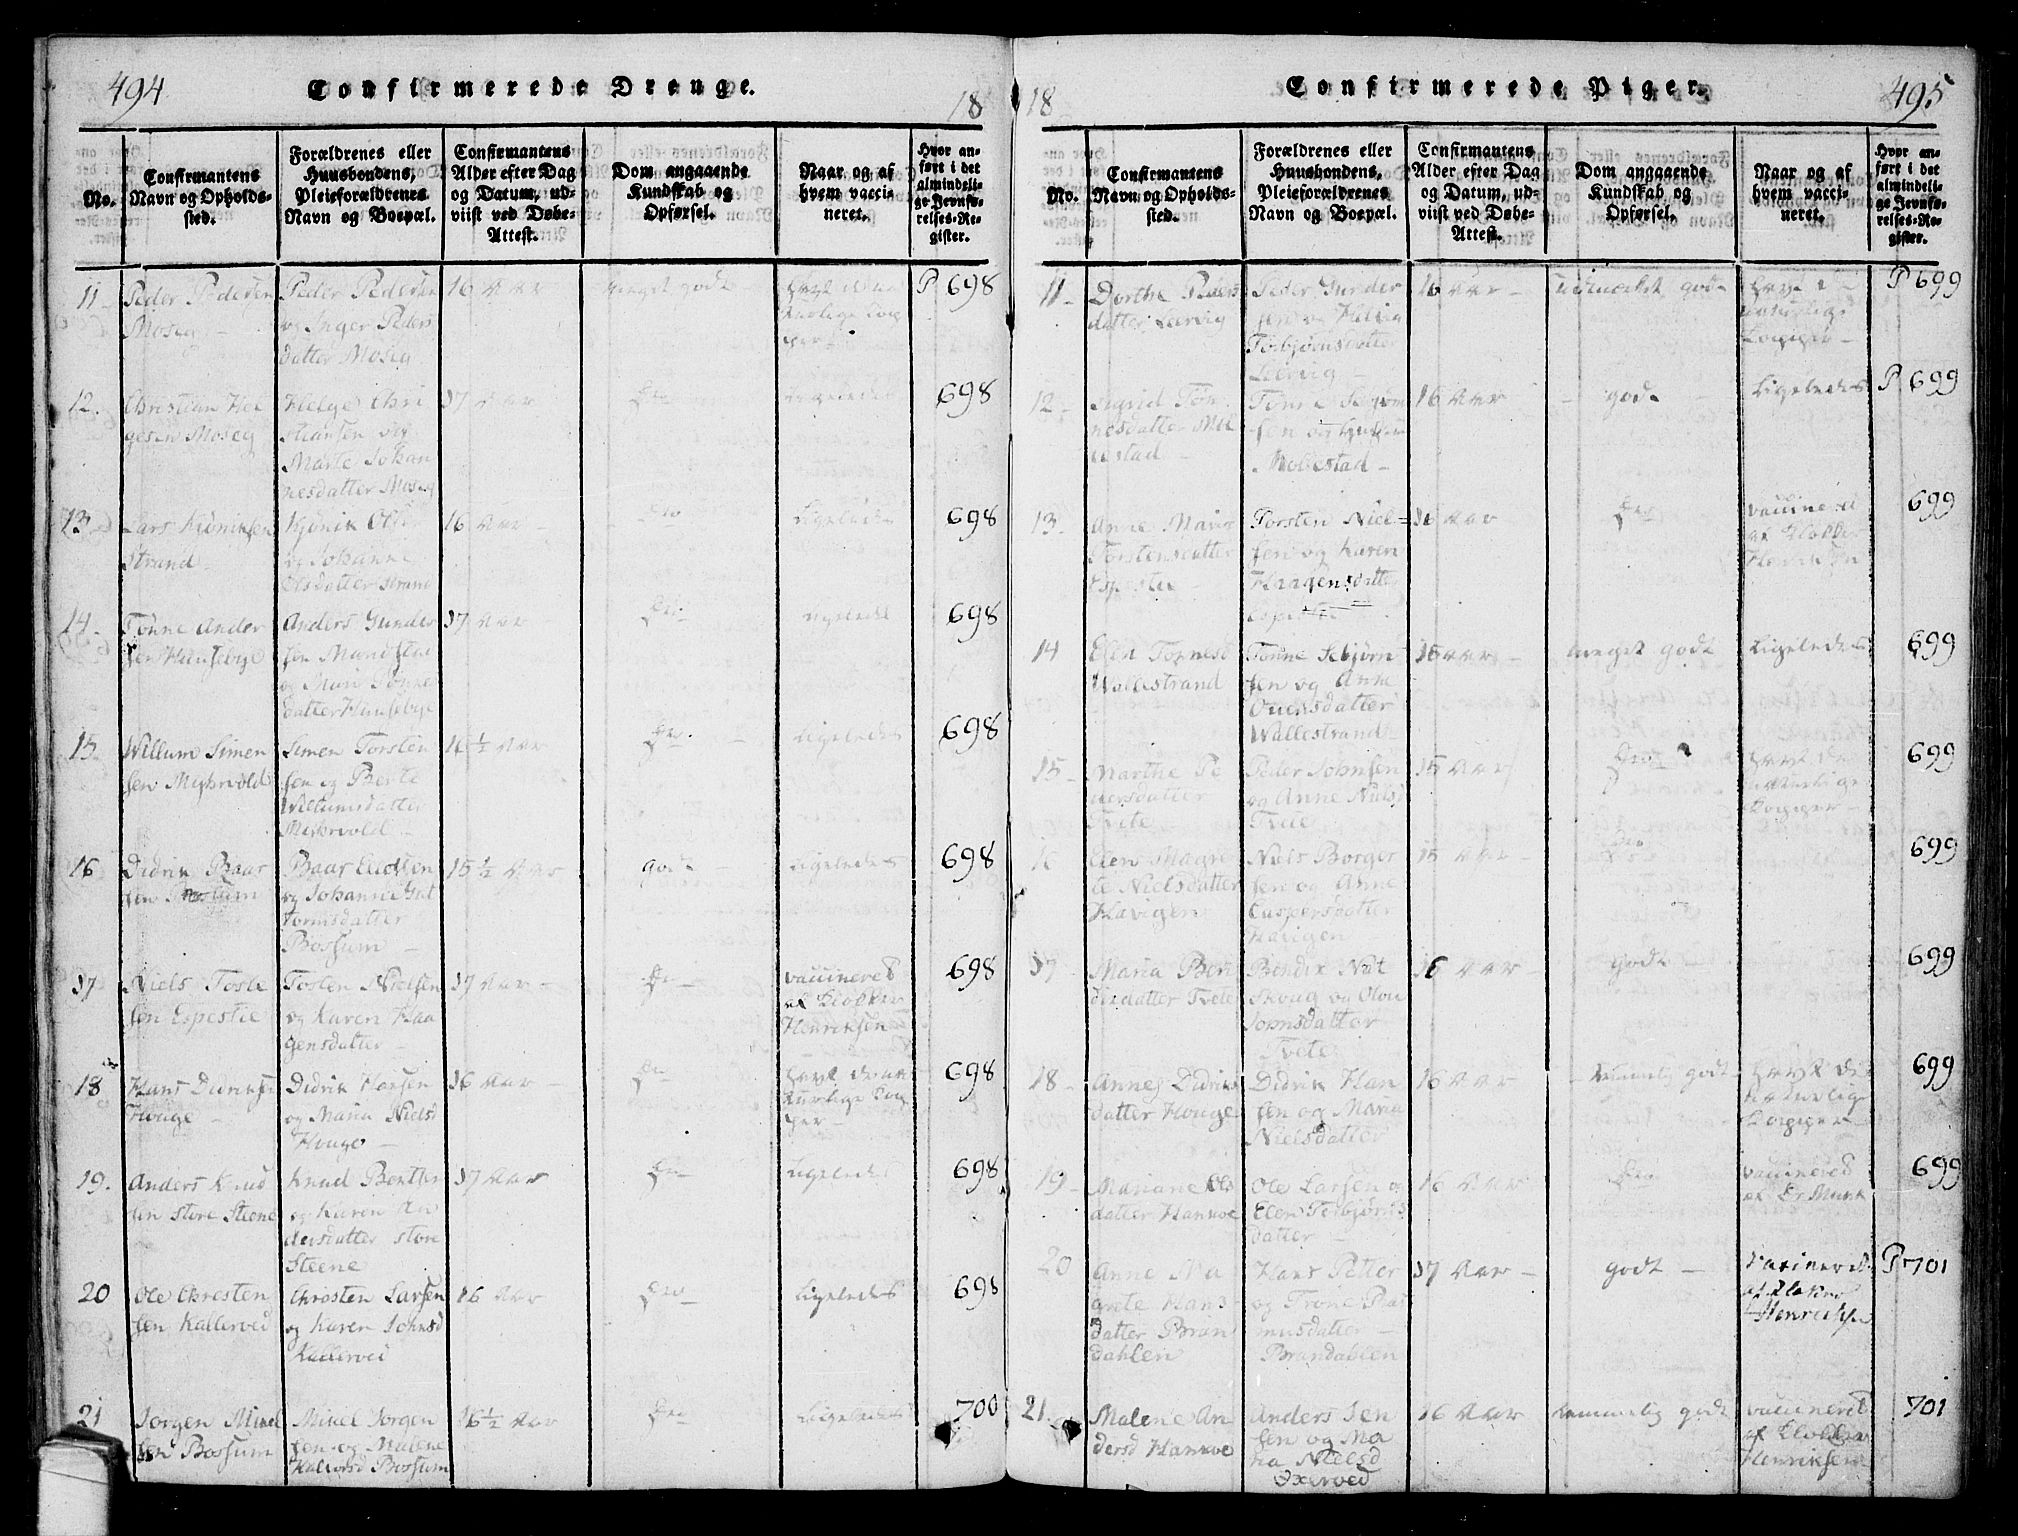 494
Confirmerede Drenge.
18
No.
Confirmantens
Navn og Opholds-
sted.
Forældrenes eller
Huusbondens,
Pleieforældrenes
Navn og Boepæl.
Confirmantens
Alder efter Dag
og Datum, ud-
viist ved Døbe-
Attest.
Dom angaaende
Kundskab og
Opførsel.
Naar og af
hvem vacci-
neret.
Hvor an-
ført i det
almindeli-
ge Jevnfø-
relses-Re-
gister.
11
Peder Pedersen
Moseg
Peder Pedersen
og Inger Peders
datter Moseg
16 Aar
meget godt
havt de na
turlige Cop
per
P 698
12.
Christian Hel
gesen Moseg
Helge Chri
stiansen og
Marte Johan
nesdatter Moseg
17 Aar
Do
Ligeledes
698
13.
Lars Kiöniksen
Strand
Kjönik Olsen
og Johanne
Olsdatter Strand
16 Aar
Do
Ligeledes
698
14.
Tönne Ander
sen Huusebye
Anders Gunder
sen
og Mari Tönne
datter Huusebye
17 Aar
Do
Ligeledes
698
15.
Willum Simen
sen Myhrvold
Simen Torsten
sen og Berte
Willumsdatter
Myhrvold
16 1/2 Aar
Do
Ligeledes
698
16
Didrik Baar
sen Bossum
Baar
og Johanne Gut
tormsdatter
Bossum
15 1/2 Aar
godt
Ligeledes
698
17
Niels Toste
sen Espestie
Tosten Nielsen
og Karen Haa
gensdatter
17 Aar
Do
vaccineret
af Klokker
Henriksen
698
18
Hans Didriks
Houge
Didrik Hansen
og Maria Niels
Houge
16 Aar
Do
havt de na
turlige Cop
per
698
19.
Anders Knud
sen store Steene
Knud Bentsen
og Karen An
dersdatter store
Steene
17 Aar
Do
Ligeledes
698
20
Ole Christen
sen Kallerved
Christen Larsen
og Karen Johnsd
Kallerved
16 Aar
Do
Ligeledes
698
21
Jörgen Mikel
sen Bossum
Mikel Jörgen
sen og Malene
Bossum
16 1/2 Aar
Do
Ligeledes
700
18
Confirmerede Piger.
495
No.
Confirmantens
Navn og Opholds-
sted.
Forældrenes eller
Huusbondens,
Pleieforældrenes
Navn og Boepæl.
Confirmantens
Alder efter Dag
og Datum, ud-
viist ved Døbe-
Attest.
Dom angaaende
Kundskab og
Opførsel.
Naar og af
hvem vacci-
neret.
Hvor an-
ført i det
almindeli-
ge Jevnfø-
relses-Re-
gister.
11
Dorthe Peders
datter Leervig
Peder Gunder
sen og Helvig
Torbjörnsdatter
Leervig
16 Aar
udmærket godt
havt de
naturlige
Copper
P 699
12
Sigrid Tön
nesdatter Mol
lestad
Tönne
sen og
Mollestad
16 Aar
godt
Ligeledes
P 699
13.
Anne Marie
Torstensdatter
Espestie
Torsten Niel=
sen og Karen
Haagensdatter
16 Aar
Do
vaccineret
af Klokker
Henriksen
699
14
Elen Tönnesd
Wallestrand
Tönne Sebjörn
sen og Anne
Ouensdatter
Wallestrand
15 Aar
meget godt
Ligeledes
699
15
Marthe Pe
dersdatter
Tvete
Peder Johnsen
og Anne Nielsd
Tvete
15 Aar
Do
havt de
naturlige
Copper
699
16
Elen Magre
te Nielsdatter
Havigen
Niels Borger
sen og Anne
Caspersdatter
Havigen
15 Aar
Do
699
17
Maria Ben
dixdatter Tvete
Bendix Nat
Skoug og Olou
Johnsdatter
Tvete
16 Aar
godt
699
18
Anne Didriks
datter Houge
Didrik Han
sen og Maria
Nielsdatter
16 Aar
temmelig godt
havt de
naturlige
Copper
699
19
Mariane Ols
datter Hanevo
Ole Larsen og
Elen Torbjörns
datter
16 Aar
Do
vaccineret
af Dr Munk
699
20
Anne Ma
grete Hans
datter Bran
dahlen
Hans Petter
og Trone Ras
musdatter
Brandahlen
17 Aar
godt
Vaccineret
af Klokker
Henrichsen
P 701
21.
Malene An
dersd Hanevo
Anders Jen
sen og Ma
ria Nielsd
Oxerved
16 Aar
temmelig godt
vaccineret
af Klokker
Henriksen
701